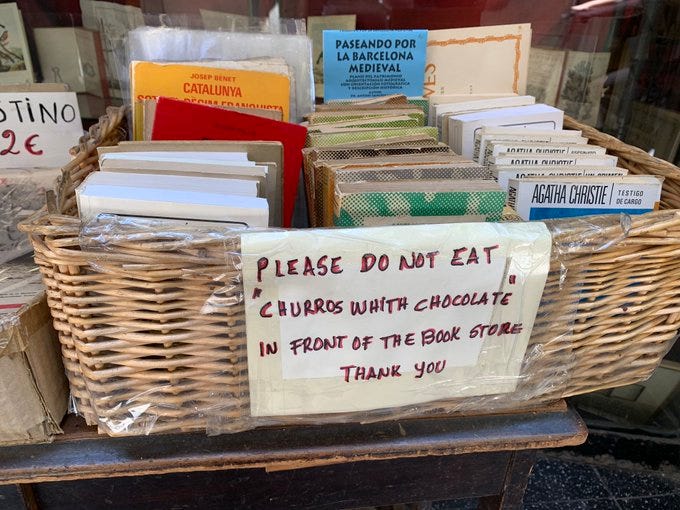 PASEANDO POR
LA BARCELONA
MEDIEVAL
JOSEP BENET
CATALUNYA
STINO
2€
AGATHA CHRISTIE
AGATHA CHRISTIE
AGATHA CHRISTIE
AGATHA CHRISTIE TESTIGO
DE CARGO
PLEASE DO NOT EAT
"CHURROS WHITH CHOCOLATE"
IN FRONT OF THE BOOK STORE
THANK YOU